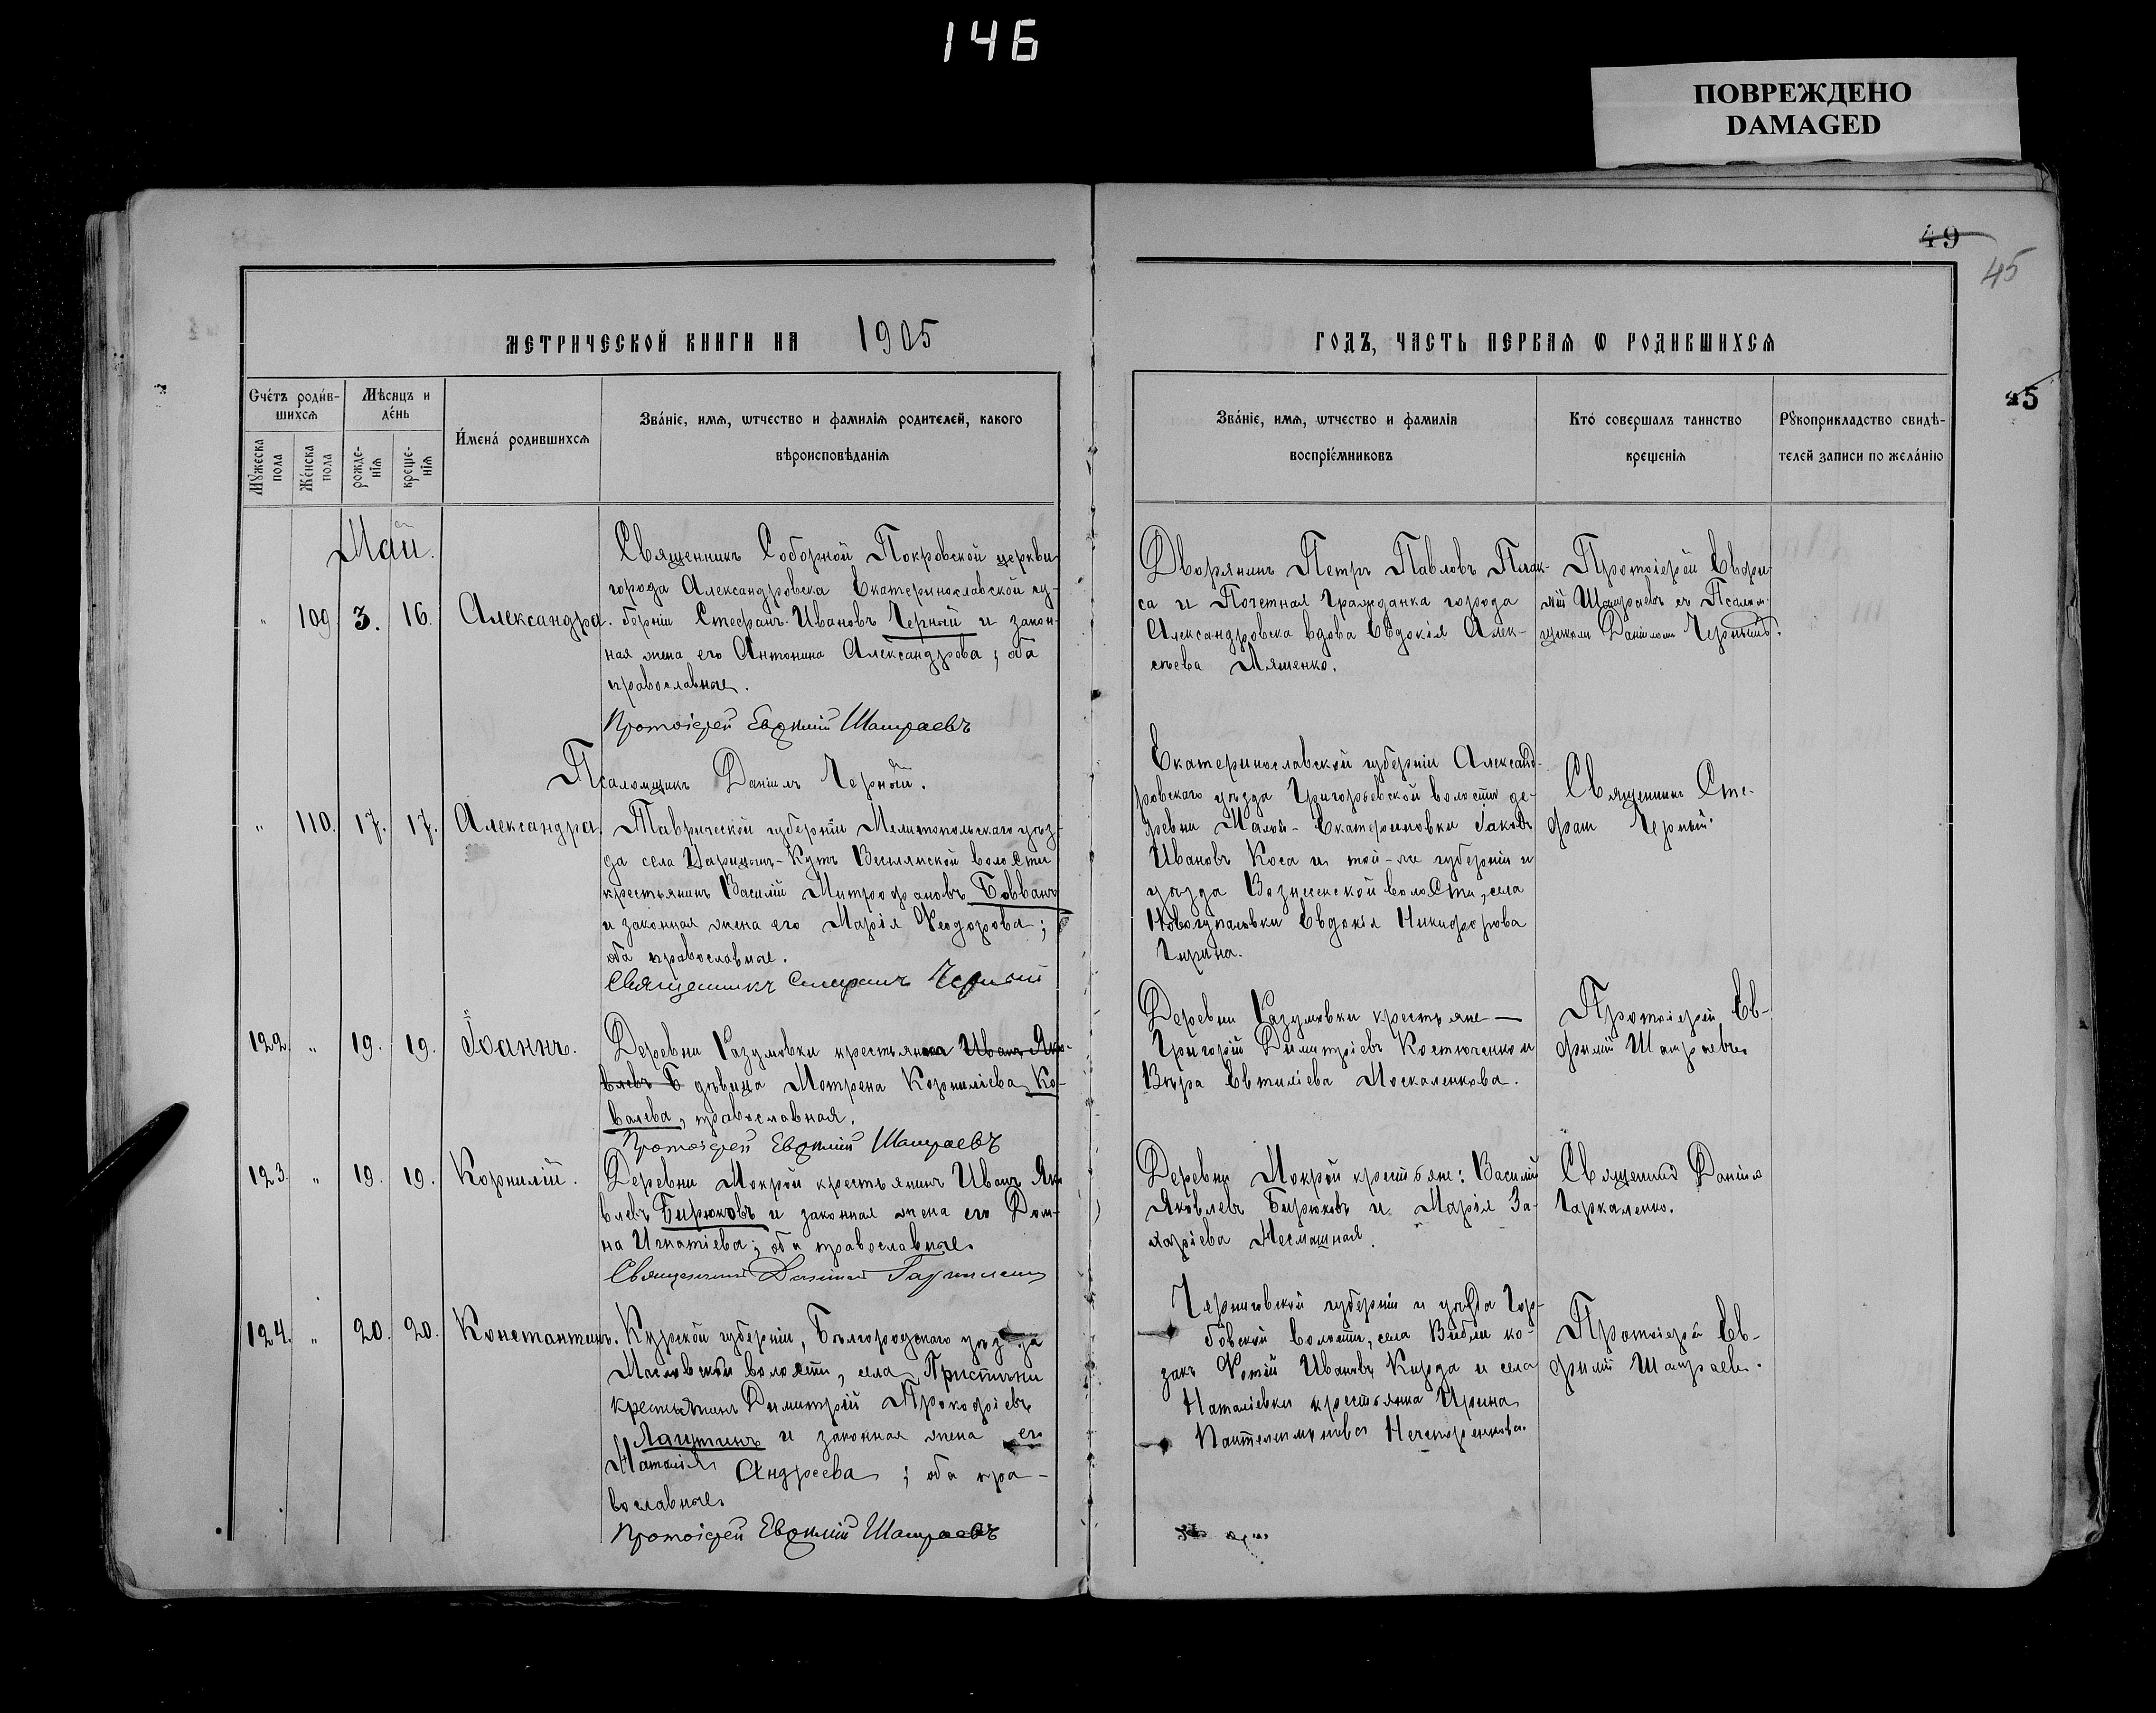 146
ПОВРЕЖДЕНО
DAMAGED
49
45
МЕТРИЧЕСКОЙ КНИГИ НА 1905
ГОДЪ, ЧАСТЬ ПЕРВАЯ Ѡ РОДИВШИХСЯ
45
Счетъ родив-
шихся
Мѣсяцъ и
день
Мужеска
пола
Женска
пола
рожде-
нія
креще-
нія
Имена родившихся
Званіе, имя, ѡтчество и фамилія родителей, какого
вѣроисповѣданія
Званіе, имя, ѡтчество и фамилія
воспріемниковъ
Кто совершалъ таинство
крещенія
Рукоприкладство свидѣ-
телей записи по желанію
Май.
" 109 3. 16. Александра.
Священникъ Соборной Покровской церкви
города Александровска Екатеринославской гу-
берніи Стефанъ Ивановъ Черный и закон-
ная жена его Антонина Александрова; оба
православные.
Протоіерей Евфимій Шатраевъ
Псаломщикъ Даніилъ Черный.
Дворянинъ Петръ Павловъ Плак-
са и Почетная Гражданка города
Александровска вдова Евдокія Алек-
сѣева Ляшенко.
Протоіерей Евфи-
мій Шатраевъ съ Псалом-
щикомъ Даніиломъ Чернымъ.
" 110. 17. 17. Александра.
Таврической губерніи Мелитопольскаго уѣз-
да села Царицынъ-Кутъ Веселянской волости
крестьянинъ Василій Митрофановъ Бовванъ
и законная жена его Марія Ѳеодорова;
оба православные.
Священникъ Стефанъ Черный
Екатеринославской губерніи Александ-
ровскаго уѣзда Григорьевской волости де-
ревни Малой-Екатериновки Іаковъ
Ивановъ Коса и той-же губерніи и
уѣзда Вознесенской волости, села
Новогупаловки Евдокія Никифорова
Священникъ Сте-
фанъ Черный.
122. " 19. 19. Іоаннъ.
Деревни Разумовки крестьянка Иванъ Яко-
влевъ Б дѣвица Мотрена Корниліева Ко-
валева, православная.
Протоіерей Евфимій Шатраевъ
Деревни Разумовки крестьяне —
Григорій Димитріевъ Костюченко и
Вѣра Евтиліева Москаленкова.
Протоіерей Ев-
фимій Шатраевъ.
123. " 19. 19. Корнилій.
Деревни Мокрой крестьянинъ Иванъ Яко-
влевъ Бирюковъ и законная жена его Дом-
на Игнатіева; оба православные.
Священникъ Даніилъ
Деревни Мокрой крестьяне: Василій
Яковлевъ Бирюковъ и Марія За-
харіева Несмашная.
Священникъ Даніилъ
124. " 20. 20. Константинъ.
Курской губерніи, Бѣлгородскаго уѣзда
Масловской волости, села Пристѣни
крестьянинъ Димитрій Прокофіевъ
Лаптинъ и законная жена его
Наталія Андреева; оба пра-
вославные.
Протоіерей Евфимій Шатраевъ
Черниговской губерніи и уѣзда Гор-
бовской волости, села Выбли ко-
закъ Фотій Ивановъ Кирда и села
Наталіевки крестьянка Ирина
Пантелеимонова Нечепоренкова.
Протоіерей Ев-
фимій Шатраевъ.